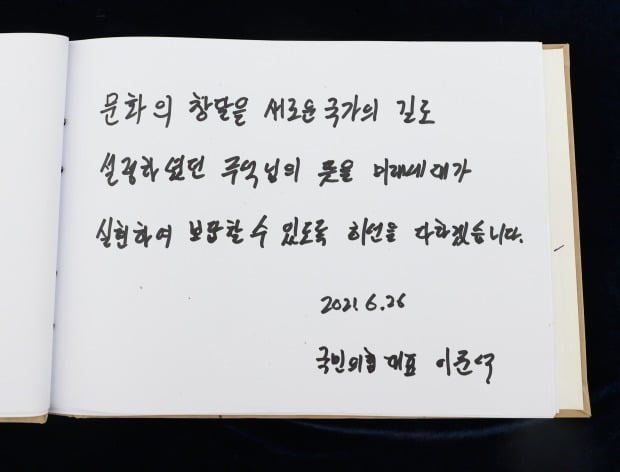 문화의 창달을 새로운 국가의 길로
설정하셨던 주석님의 뜻을 미래세대가
실현하여 보답할 수 있도록 최선을 다하겠습니다.
2021.6.26
국민의힘 대표 이준석